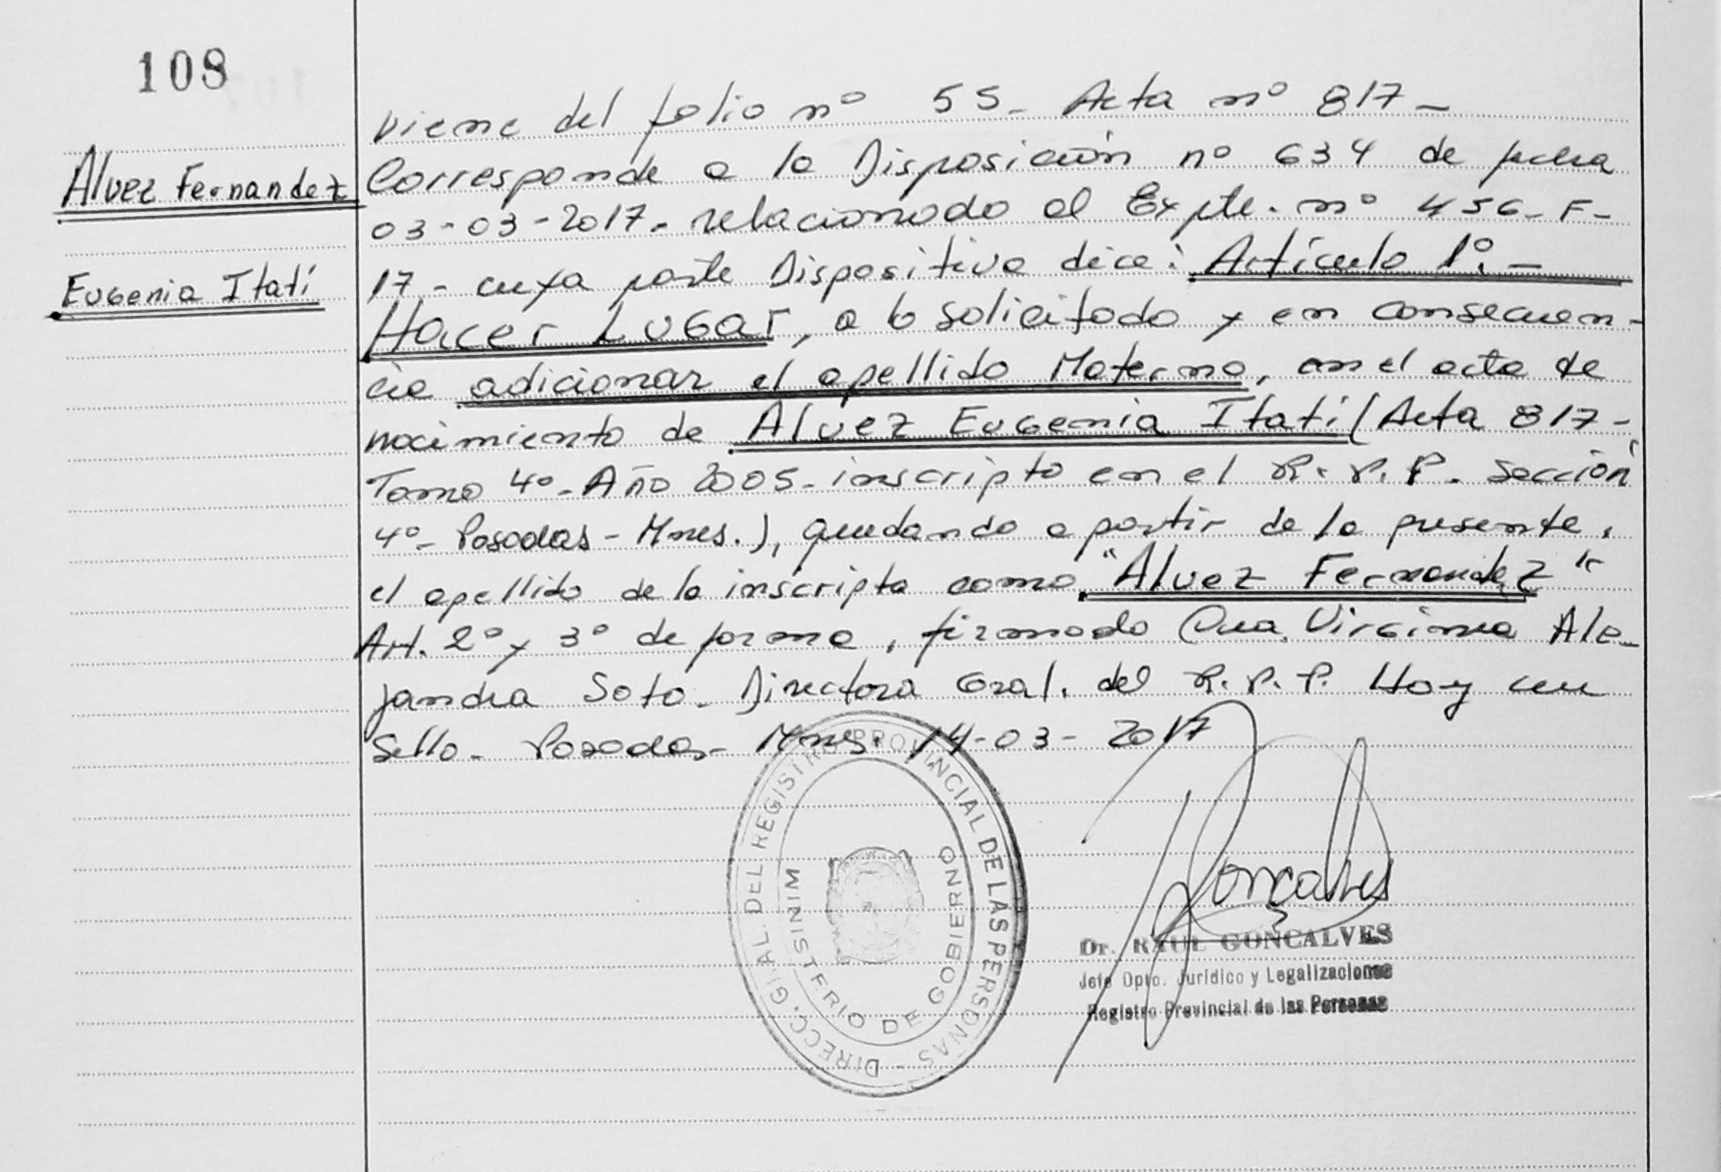 108
Alvez Fernandez
Eugenia Itatí
Viene del folio nº 55- Acta nº 817-
Corresponde a la Disposición nº 634 de fecha
03-03-2017- relacionado al Expte. nº 456-F-
17- cuya parte Dispositiva dice: Artículo 1º.-
Hacer Lugar, a lo solicitado y en consecuen-
cia adicionar el apellido Materno, en el acta de
nacimiento de Alvez Eugenia Itatí (Acta 817-
Tomo 4º- Año 2005- inscripto en el R.P.P. Sección
4º- Posadas-Mnes.), quedando a partir de la presente,
el apellido de la inscripta como "Alvez Fernandez"
Art. 2º y 3º de forma, firmado Dra. Virginia Ale-
jandra Soto- Directora Gral. del R.P.P. Hay un
Sello- Posadas- Mnes. 14-03-2017
DIRECC. GRAL. DEL REGISTRO PROVINCIAL DE LAS PERSONAS -
MINISTERIO DE GOBIERNO
Gonçalves
Dr. RAUL GONCALVES
Jefe Dpto. Jurídico y Legalizaciones
Registro Provincial de las Personas